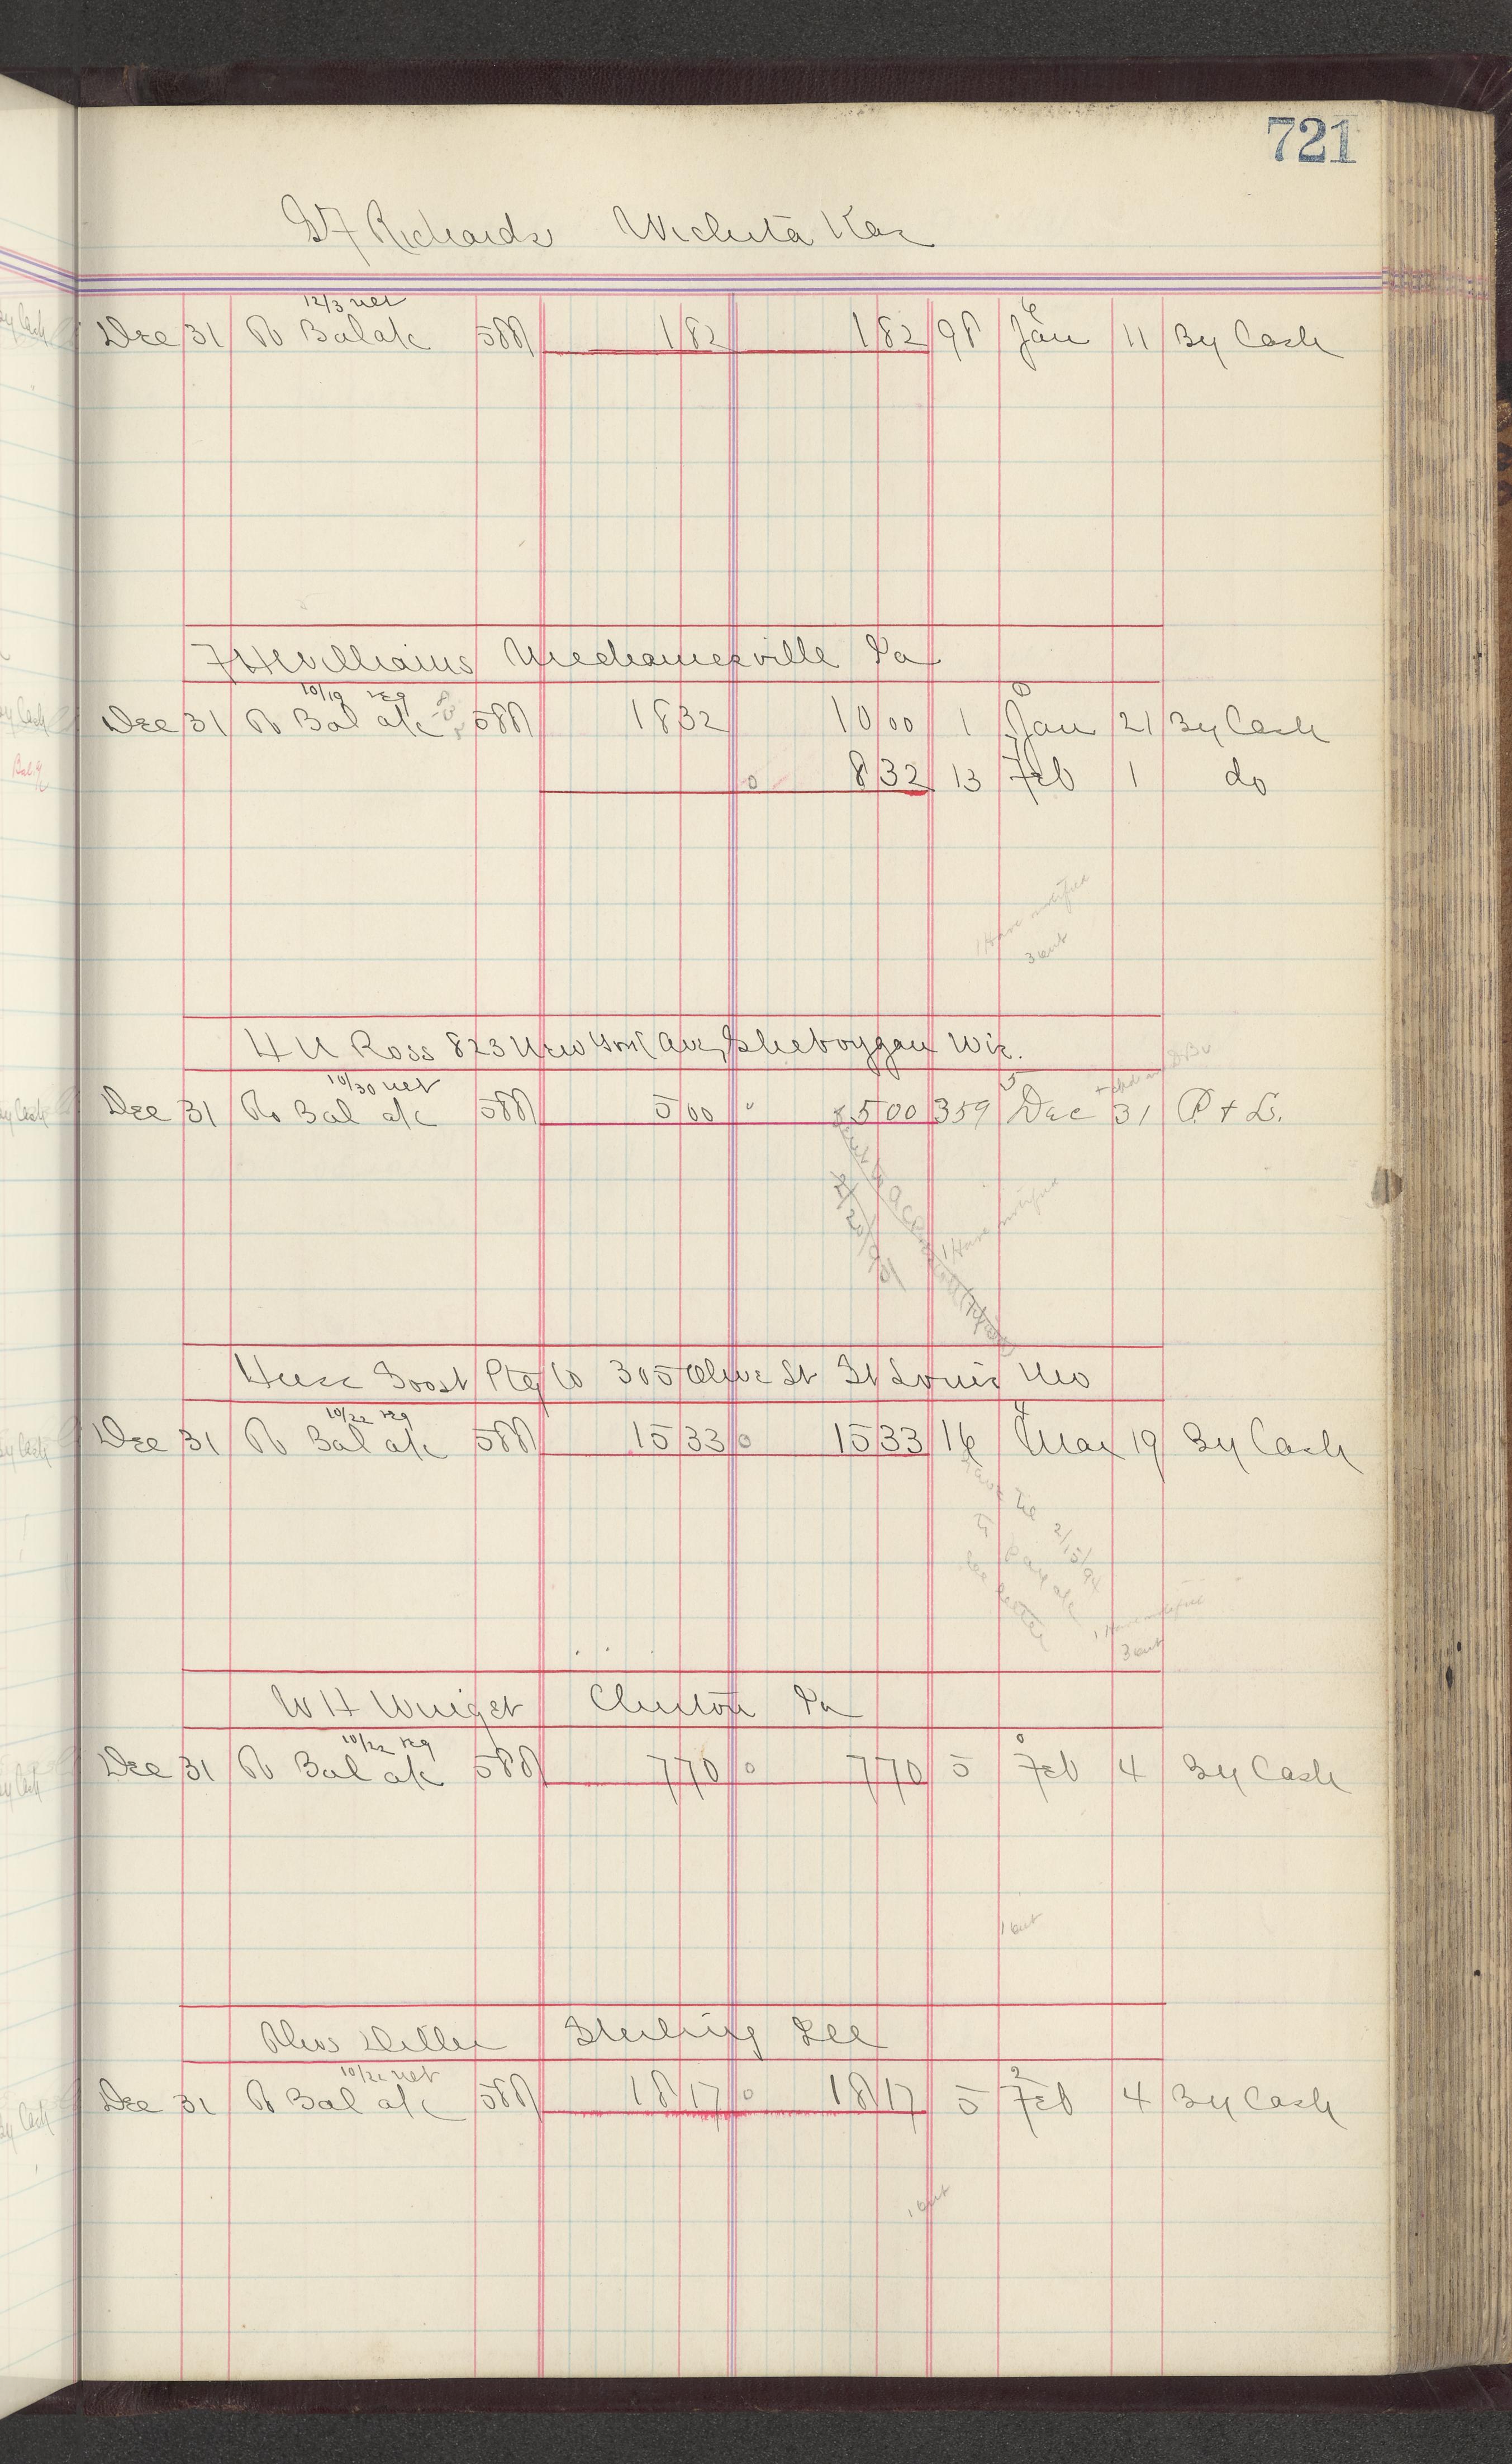 721
Richards Wichita Kas
12/3 net
Dec 31 To Bal a/c 588 1 82 1 82 98 Jan 11 By Cash
Williams Mechanicsville Pa
10/19 reg
Dec 31 To Bal a/c 588 18 32 10 00 1 Jan 21 By Cash
0 8 32 13 Feb 1 do
1 Have notified
3 out
H U Ross 823 New York Ave, Sheboygan Wis.
10/30 net
Dec 31 To Bal a/c 588 5 00 " 5 00 359 Dec 31 P + L.
1 Have notified
Boost Ptg Co 305 Olive St St Louis Mo
10/22 reg
Dec 31 To Bal a/c 588 15 33 0 15 33 16 Mar 19 By Cash
2/15/
to Pay a/c
1 Have notified
3 out
W H Clinton Pa
10/22 reg
Dec 31 To Bal a/c 588 7 70 0 7 70 5 Feb 4 By Cash
1 out
Sterling Ill
net
Dec 31 To Bal a/c 588 18 17 0 18 17 5 Feb 4 By Cash
1 out